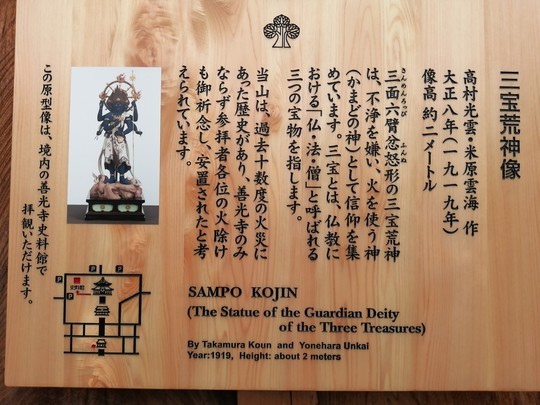 三宝荒神像
高村光雲・米原雲海 作
大正八年(一九一九年)
像高 約二メートル
三面六臂忿怒形の三宝荒神
さんめんろっぴ ふんぬ
は、不浄を嫌い、火を使う神
(かまどの神)として信仰を集
めています。三宝とは、仏教に
おける「仏・法・僧」と呼ばれる
三つの宝物を指します。
当山は、過去十数度の火災に
あった歴史があり、善光寺のみ
ならず参拝者各位の火除け
も御祈念し、安置されたと考
えられています。
この原型像は、境内の善光寺史料館で
拝観いただけます。
SAMPO KOJIN
(The Statue of the Guardian Deity
of the Three Treasures)
By Takamura Koun and Yonehara Unkai
Year:1919, Height: about 2 meters
P
P
P
P
史料館